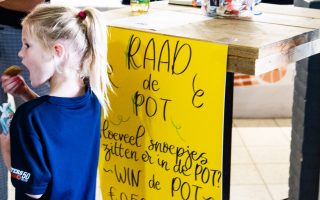 RAAD
de
POT
hoeveel snoepjes
zitten er in de POT?
WIN de POT